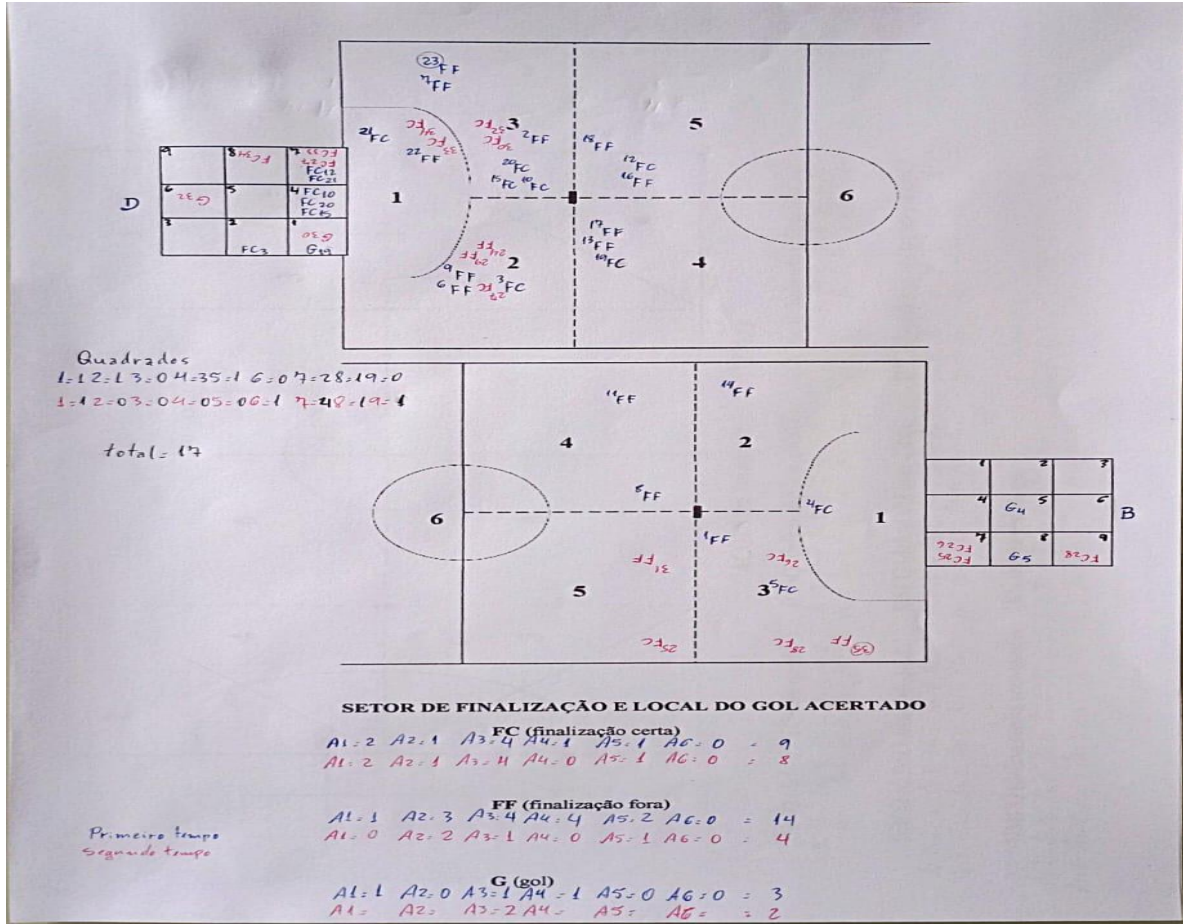 23 FF
7 FF
21 FC
FC 31
FC 33
22 FF
FC 32
FC 30
3
2 FF
20 FC
15 FC 10 FC
18 FF
5
12 FC
16 FF
1
6
D
9 8 FC34 7 FC33
FC27
FC12
FC21
6 G32 5 4 FC10
FC20
FC15
3 2 FC3 1 G30
G19
17 FF
13 FF
19 FC
4
FF 24
FF 29
2
9 FF
6 FF FC 27 3 FC
Quadrados
1=1 2=1 3=0 4=3 5=1 6=0 7=2 8=1 9=0
1=1 2=0 3=0 4=0 5=0 6=1 7=4 8=1 9=1
total=17
11 FF
14 FF
4
2
8 FF
6
4 FC
1
1 FF
FF 31
FC 26
5
3 5 FC
FC 25
FC 28
FF 35
1 2 3
4 G4 5 6
FC26 7
FC25 G5 8 FC28 9
B
SETOR DE FINALIZAÇÃO E LOCAL DO GOL ACERTADO
FC (finalização certa)
A1=2 A2=1 A3=4 A4=1 A5=1 A6=0 = 9
A1=2 A2=1 A3=4 A4=0 A5=1 A6=0 = 8
FF (finalização fora)
A1=1 A2=3 A3=4 A4=4 A5=2 A6=0 = 14
A1=0 A2=2 A3=1 A4=0 A5=1 A6=0 = 4
Primeiro tempo
Segundo tempo
G (gol)
A1=1 A2=0 A3=1 A4=1 A5=0 A6=0 = 3
A1= A2= A3=2 A4= A5= A6= = 2